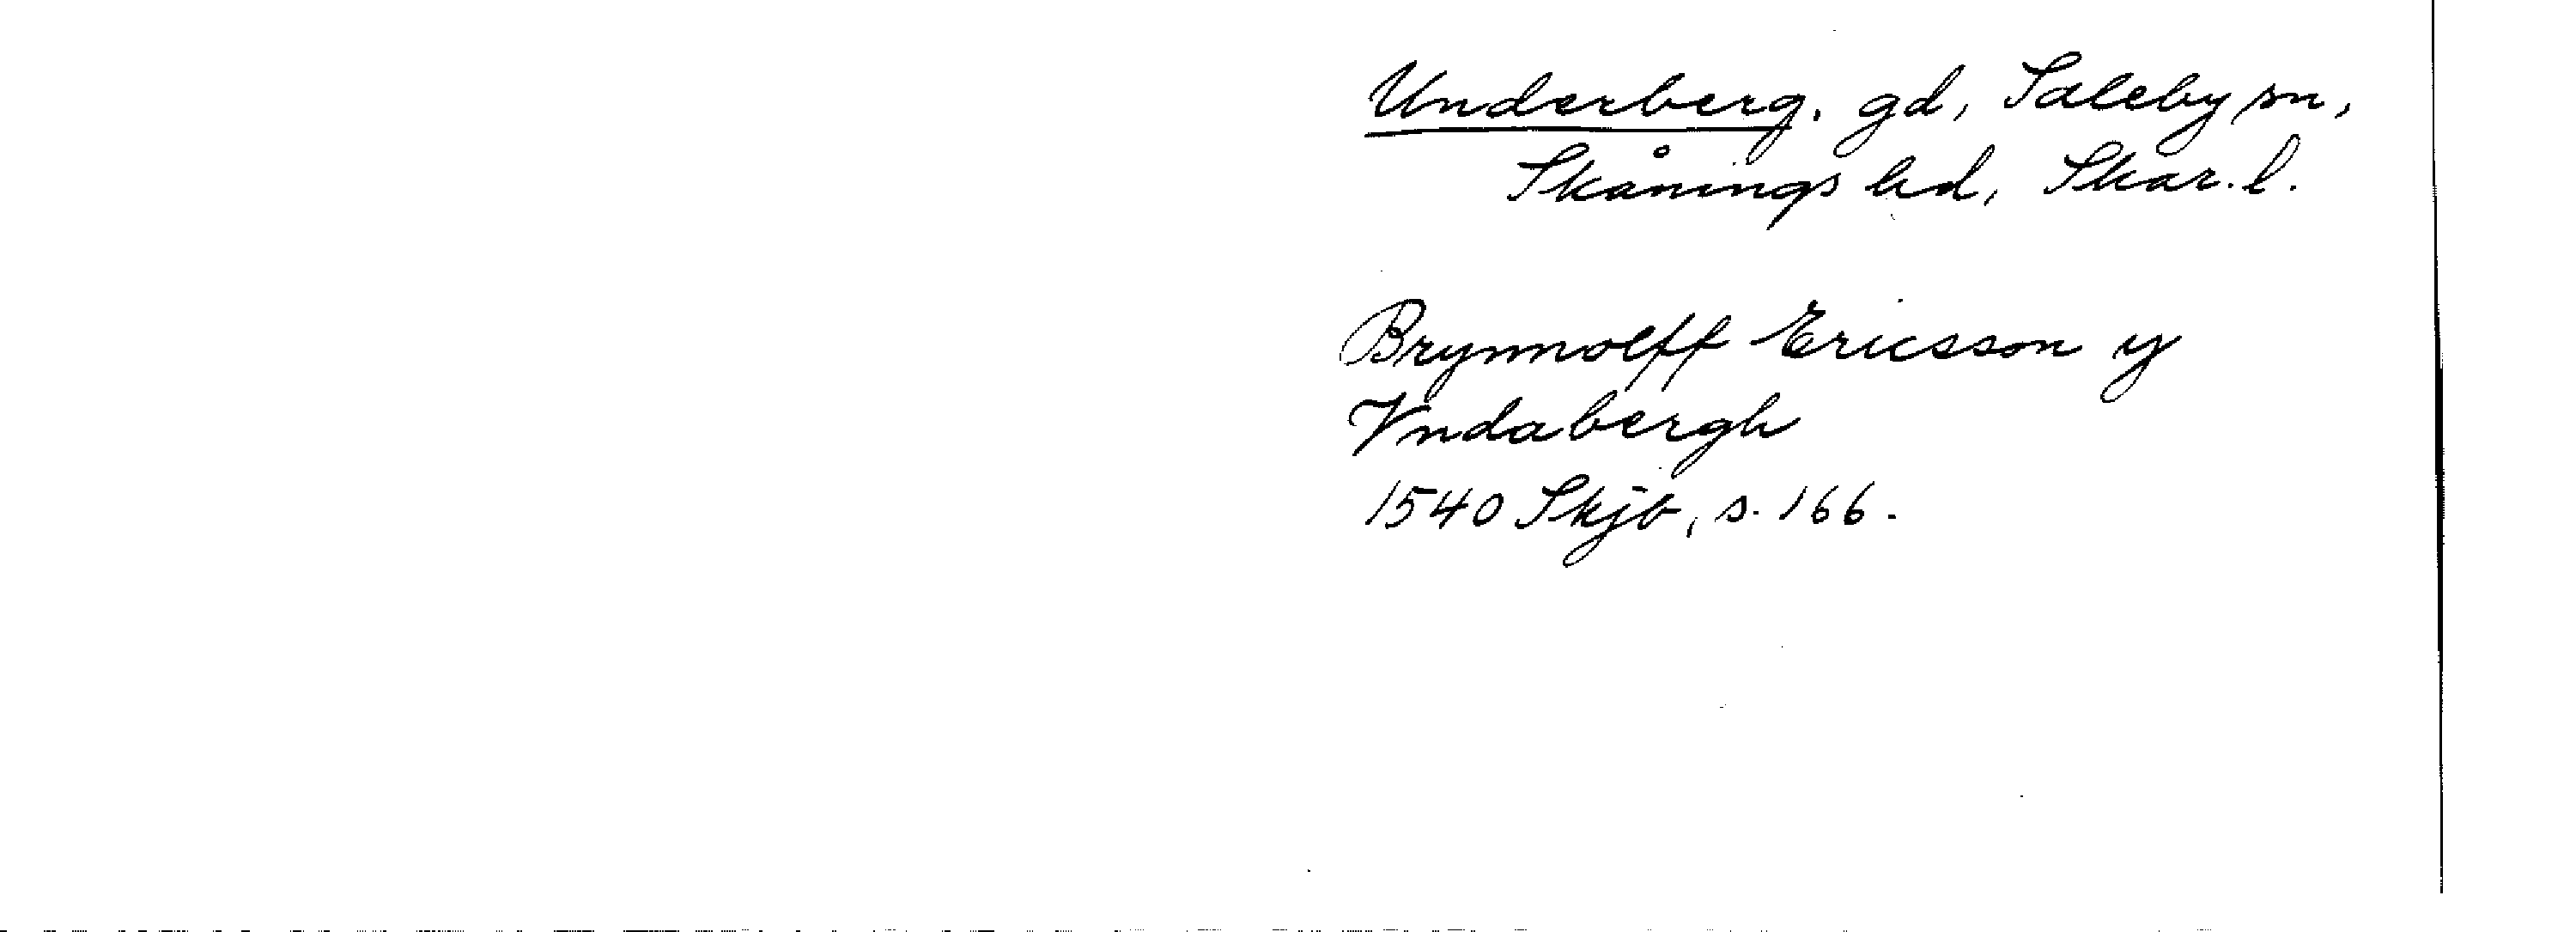 Underberg. gd, Saleby sn,
Skånings hd, Skar. l.
Brynnolff Ericsson y
Vndabergh
1540 Skjb, s. 166.